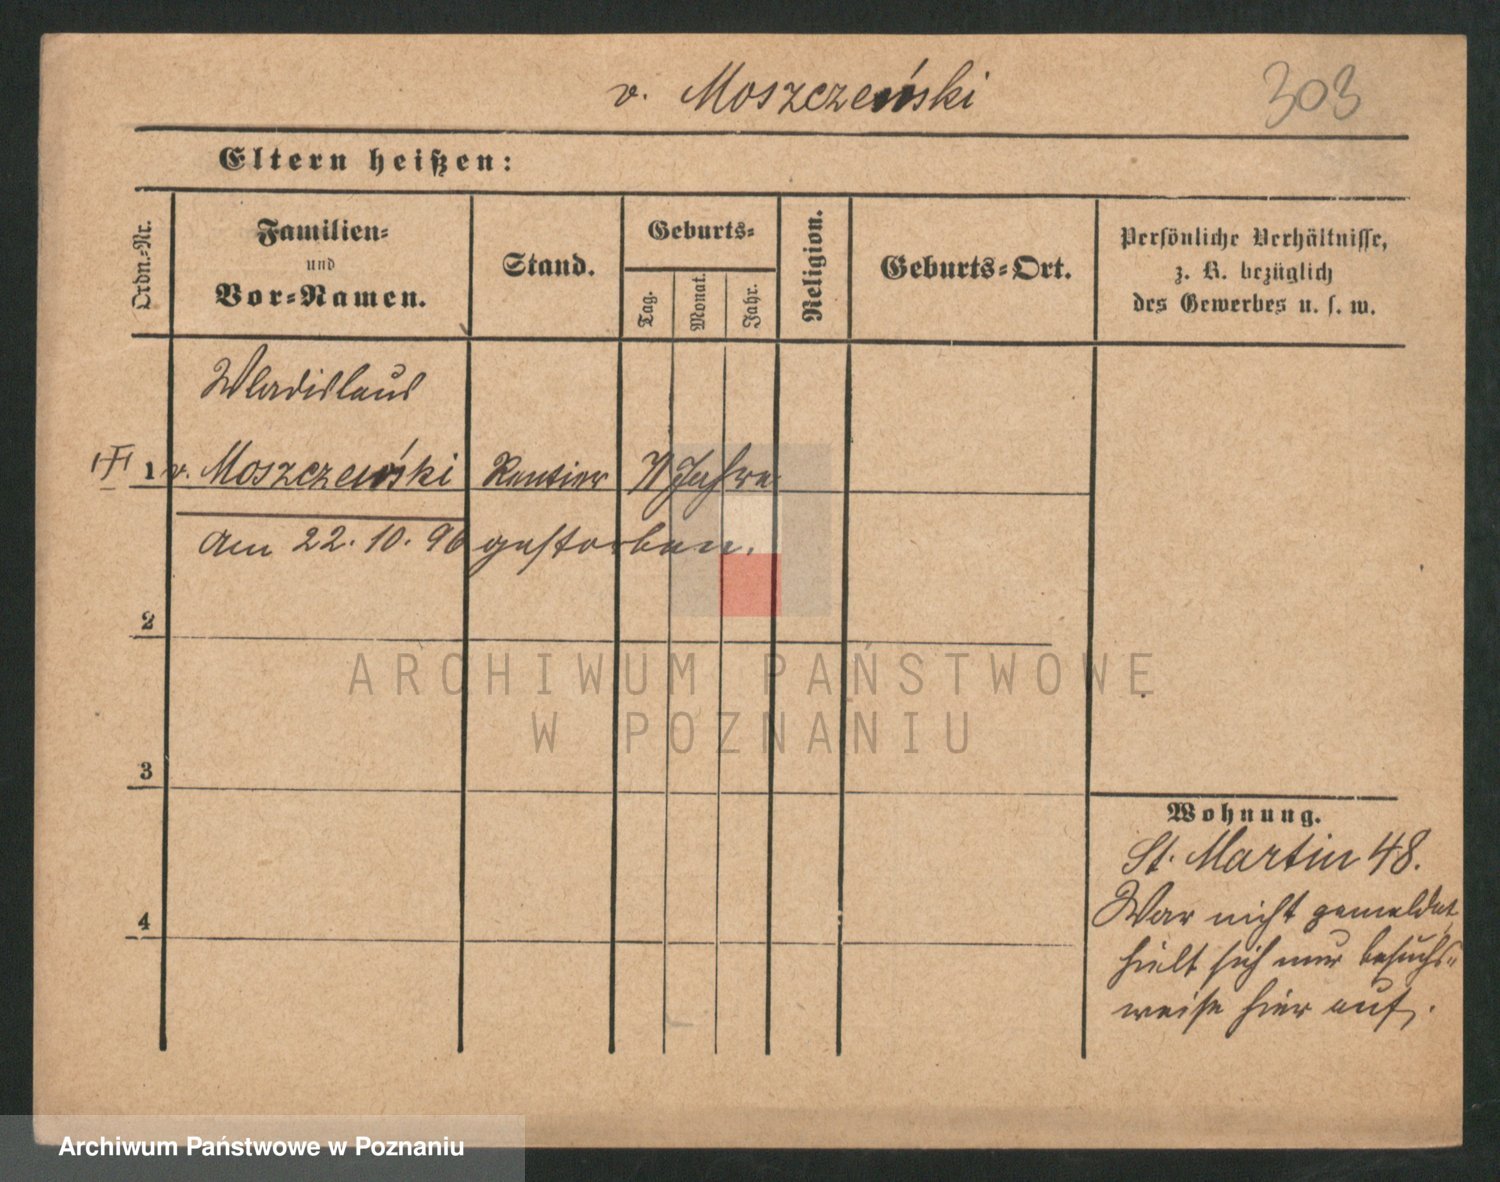 v. Moszczeński
303
Eltern heißen:
Ordn.-Nr.
Familien-
und
Vor-Namen.
Stand.
Geburts-
Tag.
Monat.
Jahr.
Religion.
Geburts-Ort.
Persönliche Verhältnisse,
z. B. bezüglich
des Gewerbes u. s. w.
Wladislaus
1 v. Moszczeński Rentier 71 Jahre
am 22. 10. 96 gestorben.
2
3
4
Wohnung.
St. Martin 48.
War nicht gemeldet
hielt sich nur besuchs-
weise hier auf.
ARCHIWUM PAŃSTWOWE
W POZNANIU
Archiwum Państwowe w Poznaniu